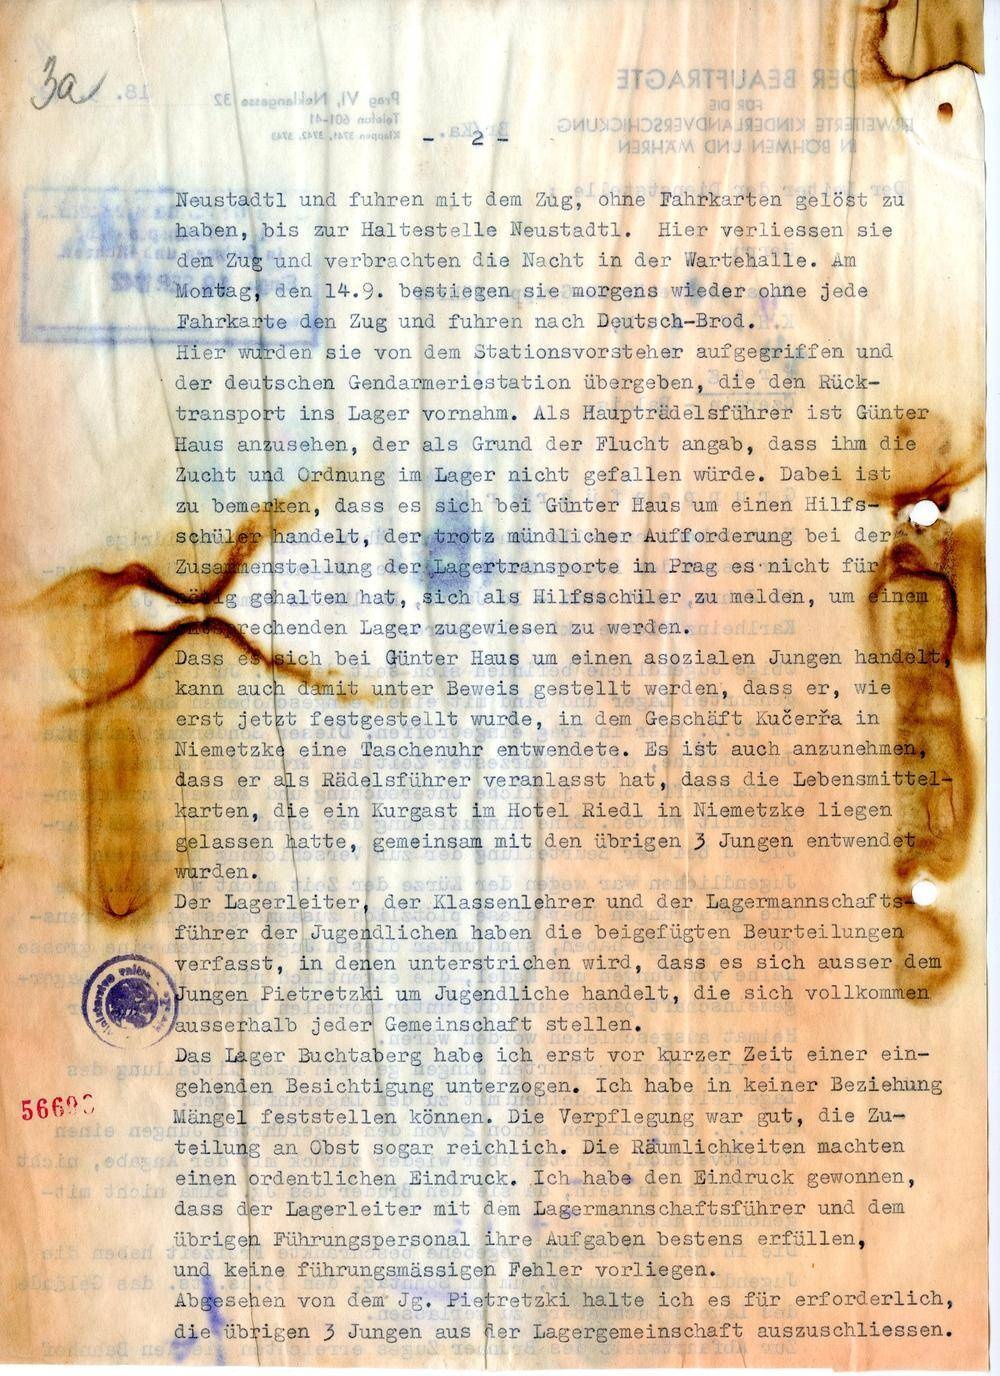 3a
- 2 -
Neustadtl und fuhren mit dem Zug, ohne Fahrkarten gelöst zu
haben, bis zur Haltestelle Neustadtl. Hier verliessen sie
den Zug und verbrachten die Nacht in der Wartehalle. Am
Montag, den 14.9. bestiegen sie morgens wieder ohne jede
Fahrkarte den Zug und fuhren nach Deutsch-Brod.
Hier wurden sie von dem Stationsvorsteher aufgegriffen und
der deutschen Gendarmeriestation übergeben, die den Rück-
transport ins Lager vornahm. Als Haupträdelsführer ist Günter
Haus anzusehen, der als Grund der Flucht angab, dass ihm die
Zucht und Ordnung im Lager nicht gefallen würde. Dabei ist
zu bemerken, dass es sich bei Günter Haus um einen Hilfs-
schüler handelt, der trotz mündlicher Aufforderung bei der
Zusammenstellung der Lagertransporte in Prag es nicht für
nötig gehalten hat, sich als Hilfsschüler zu melden, um einem
entsprechenden Lager zugewiesen zu werden.
Dass es sich bei Günter Haus um einen asozialen Jungen handelt,
kann auch damit unter Beweis gestellt werden, dass er, wie
erst jetzt festgestellt wurde, in dem Geschäft Kučerřa in
Niemetzke eine Taschenuhr entwendete. Es ist auch anzunehmen,
dass er als Rädelsführer veranlasst hat, dass die Lebensmittel-
karten, die ein Kurgast im Hotel Riedl in Niemetzke liegen
gelassen hatte, gemeinsam mit den übrigen 3 Jungen entwendet
wurden.
Der Lagerleiter, der Klassenlehrer und der Lagermannschafts-
führer der Jugendlichen haben die beigefügten Beurteilungen
verfasst, in denen unterstrichen wird, dass es sich ausser dem
Jungen Pietretzki um Jugendliche handelt, die sich vollkommen
ausserhalb jeder Gemeinschaft stellen.
Das Lager Buchtaberg habe ich erst vor kurzer Zeit einer ein-
gehenden Besichtigung unterzogen. Ich habe in keiner Beziehung
Mängel feststellen können. Die Verpflegung war gut, die Zu-
teilung an Obst sogar reichlich. Die Räumlichkeiten machten
einen ordentlichen Eindruck. Ich habe den Eindruck gewonnen,
dass der Lagerleiter mit dem Lagermannschaftsführer und dem
übrigen Führungspersonal ihre Aufgaben bestens erfüllen,
und keine führungsmässigen Fehler vorliegen.
Abgesehen von dem Jg. Pietretzki halte ich es für erforderlich,
die übrigen 3 Jungen aus der Lagergemeinschaft auszuschliessen.